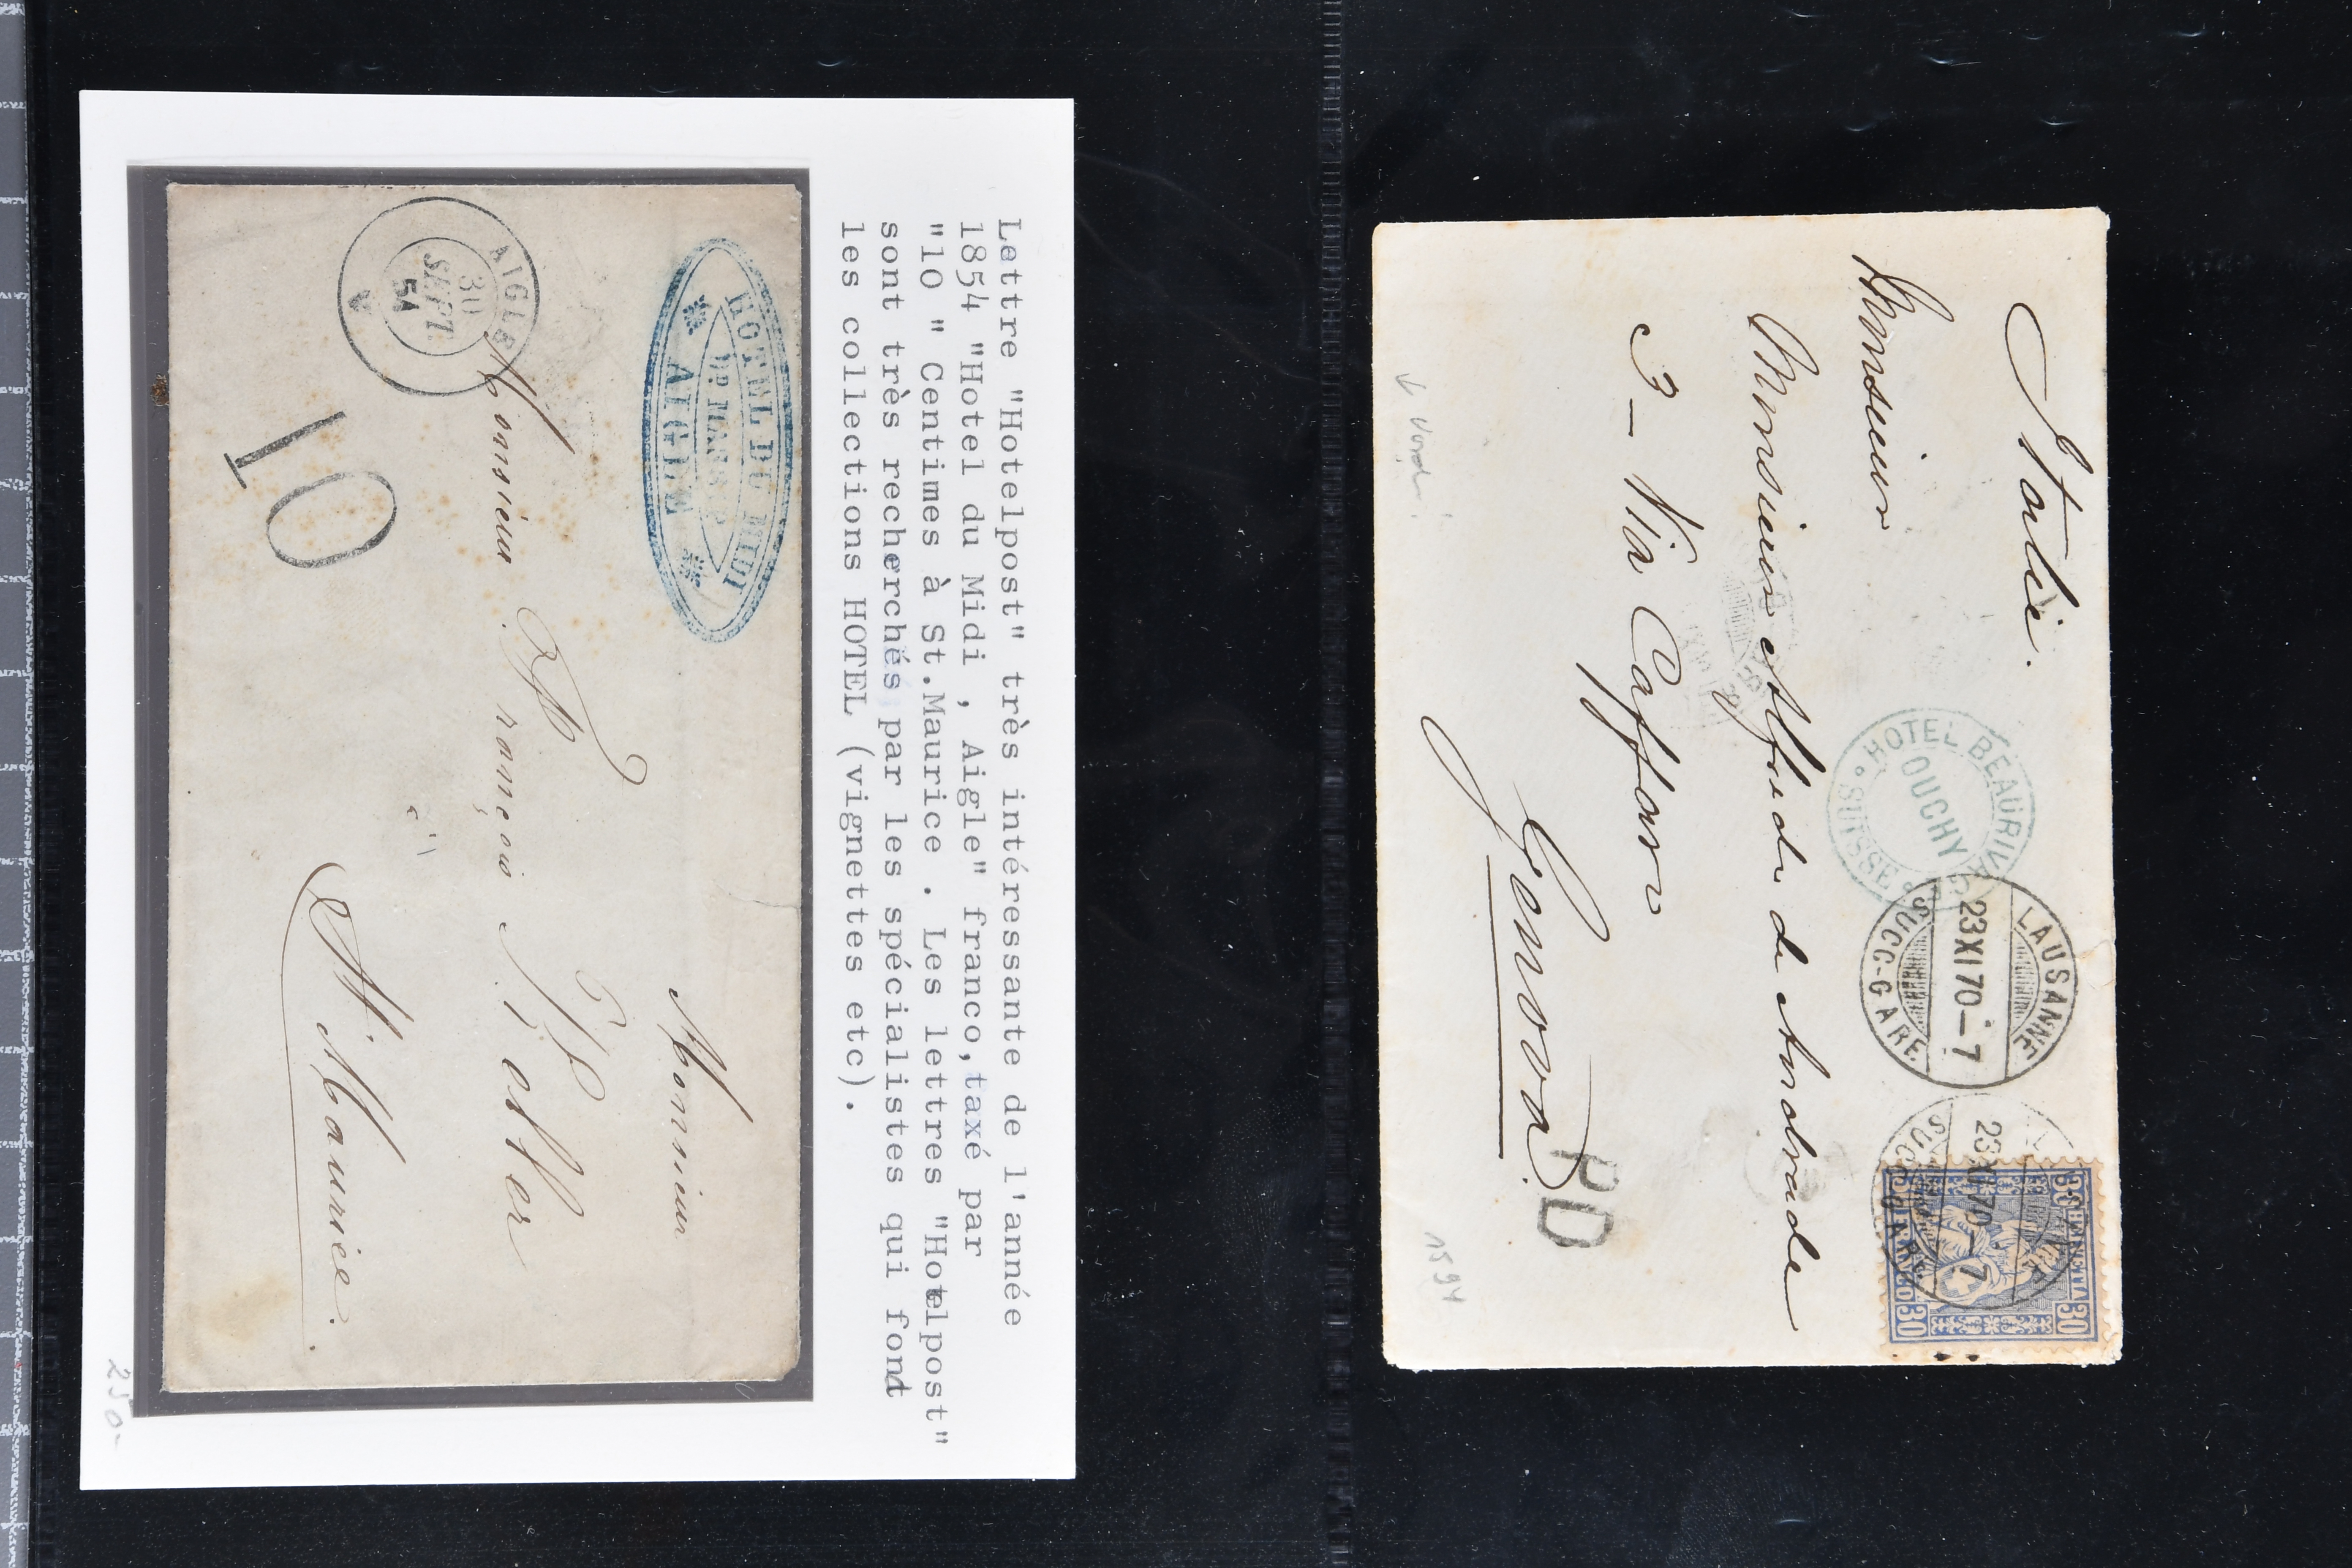 Lettre "Hotelpost" très intéressante de l'année
1854 "Hotel du Midi , Aigle" franco, taxé par
"10 " Centimes à St.Maurice . Les lettres "Hotelpost"
sont très recherchés par les spécialistes qui fond
les collections HOTEL (vignettes etc).
HOTEL DU MIDI
AIGLE
Monsieur
AIGLE
30
SEPT
54
A
Monsieur
à
St Maurice.
10
250.-
Italie.
HOTEL BEAURIVAGE
OUCHY
SUISSE
LAUSANNE
23 XI 70 – 7
SUCC-GARE
23 XI 70 – 7
30
30
Monsieur
Monsieur Alfredo de Andrade
3 – Via Caffaro
Genova.
PD
1594